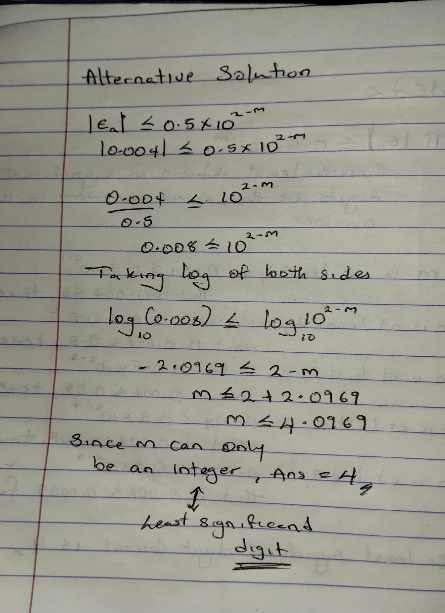 Alternative Solution
|εa| ≤ 0.5×10^2-m
|0.004| ≤ 0.5×10^2-m
0.004 ≤ 10^2-m
0.5
0.008 ≤ 10^2-m
Taking log of both sides
log10 (0.008) ≤ log10 10^2-m
-2.0969 ≤ 2-m
m ≤ 2 + 2.0969
m ≤ 4.0969
Since m can only
be an integer, Ans = 4
↕
Least significand
digit